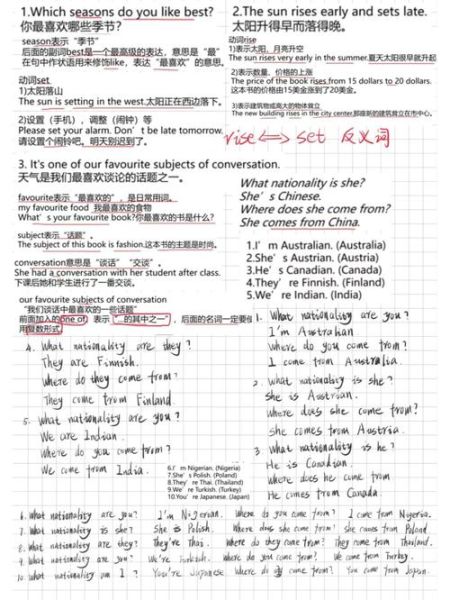 1.Which seasons do you like best?
你最喜欢哪些季节?
season表示“季节”
后面的副词best是一个最高级的表达，意思是“最”
在句中作状语用来修饰like，表达“最喜欢”的意思。
动词set
1)太阳落山
The sun is setting in the west.太阳正在西边落下。
2)设置（手机），调整（闹钟）等
Please set your alarm. Don't be late tomorrow.
请设置个闹钟吧。明天别迟到了。
2.The sun rises early and sets late.
太阳升得早而落得晚。
动词rise
1)表示太阳，月亮升空
The sun rises very early in the summer.夏天太阳很早就升起
2)表示数量，价格的上涨
The price of the book rises from 15 dollars to 20 dollars.
这本书的价格由15美金涨到了20美金。
3)表示建筑物或高大的物体耸立
The new building rises in the city center.那座新的建筑耸立在市中心。
rise <=> set 反义词
3. It's one of our favourite subjects of conversation.
天气是我们最喜欢谈论的话题之一。
favourite表示“最喜欢的”，是日常用词。
my favourite food 我最喜欢的食物
What's your favourite book?你最喜欢的书是什么?
subject表示“话题”。
The subject of this book is fashion.这本书的主题是时尚。
conversation意思是“谈话” “交谈”。
She had a conversation with her student after class.
下课后她和学生进行了一番交谈。
our favourite subjects of conversation
“我们谈话中最喜欢的一些话题”
前面加入的one of 表示 “...的其中之一”，后面的名词一定要使
用复数形式
What nationality is she?
She's Chinese.
Where does she come from?
She comes from China.
1.I'm Australian. (Australia)
2.She's Austrian. (Austria)
3.He's Canadian. (Canada)
4.They're Finnish. (Finland)
5.We're Indian. (India)
1. What nationality are you?
I'm Australian
Where do you come from?
I come from Australia.
2. What nationality is she?
She is Austrian.
Where does she come from?
She comes from Austria.
3 What nationality is he?
He is Canadian.
Where does he come from
He comes from Canada.
4. What nationality are they?
They are Finnish.
Where do they come from?
They come from Finland
5. What nationality are you?
We are Indian.
Where do you come from?
We come from India.
6.I'm Nigerian. (Nigeria)
7.She's Polish. (Poland)
8.They're Thai. (Thailand)
9.We're Turkish. (Turkey)
10.You're Japanese. (Japan)
6. What nationality are you? I'm Nigerian. Where do you come from? I come from Nigeria.
7. What nationality is she? She is Polish. Where does she come from? She comes from Poland
8. What nationality are they? They're Thai. Where do they come from? They come from Thailand.
9. What nationality are you? We're Turkish. Where do you come from? We come from Turkey.
10. What nationality am I? You're Japanese Where do I come from? You come from Japan